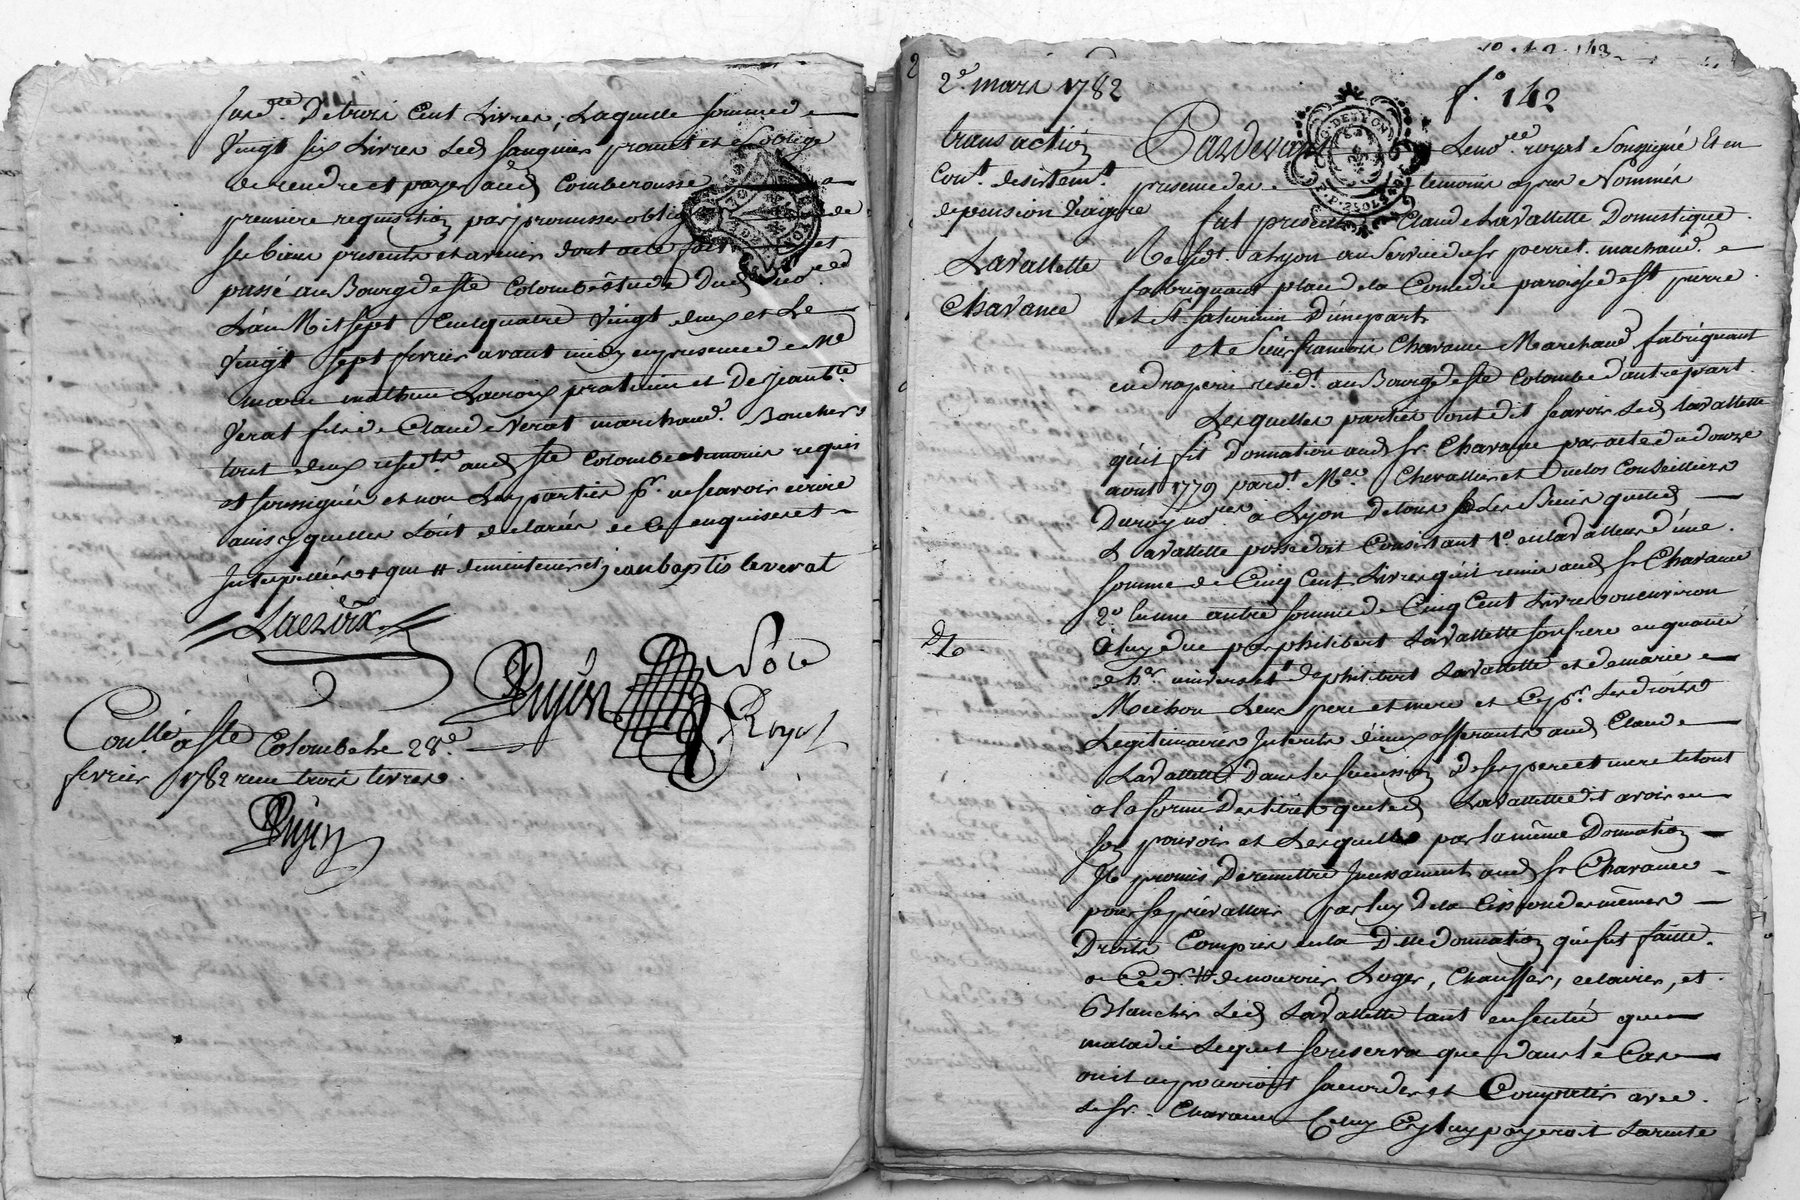 De trois Cent Livres, Laquelle somme de
Vingt six Livres Led. sanguier promet et s'oblige
de rendre et payer aud. Comberousse a
premiere requisition par promesse oblig de
ses biens presents et avenir dont acte et
passé au Bourg de Ste Colombe étude Dud. no.re
L'an Mil sept Cent quatre Vingt deux et Le
Vingt sept fevrier avant midy en presence de Me
Lacroix praticien et De jean b.te
Verat fils de Claude Verat marchand Boucher
tout deux resid.ts aud. Ste Colombe temoins requis
et soussignés et non Les parties pr ne scavoir ecrire
ainsy quelles L'ont declarés de Ce enquises et
Interpellées jean baptiste verat
Lacroix
Dujon No.re
Royal
Con.llé a Ste Colombe le 28.e
fevrier 1782 reçu trois livres
Dujon
2.e mars 1782
f.o 142
transaction
Con.t desistem.t
de pension Viagere
Lavallette
Chavance
Pardevant Le no.re royal soussigné Et en
presence des temoins apres Nommés
fut present Claude Lavallette Domestique
Resid.t a Lyon au service de sr perret marchand
fabriquant place de la Comedie paroisse de st pierre
et st saturnin D'une part
et le Sieur francois Chavance Marchand fabriquant
en draperie resid.t au Bourg de Ste Colombe d'autre part.
Lesquelles parties ont dit scavoir Led. Lavallette
qu'il fit Donnation aud. sr Chavance par acte du douze
aout 1779 pard.t M.es Chevallier et Duclos Conseillers
Du roy no.res a Lyon De tous Les Biens que led.
Lavallette possedoit Consistant 1.o en la Valleur d'une
somme de Cinq Cent Livres qu'il remit aud. sr Chavance
2.o En une autre somme de Cinq Cent Livres ou environ
a luy due par philibert Lavallette son frere en qualité
d'h.er universel de philibert Lavallette et de marie
Michon Leur pere et mere et les Droits
Legitimaires Interets d'iceux afferants aud. Claude
Lavallette Dans les succession De ses pere et mere le tout
a la forme Des titres que led. Lavallette dit avoir en
son pouvoir et Lesquelles par la même Donnation
Il promis De remettre Incessament aud. sr Chavance
pour se prévalloir par luy De la Cession des mêmes
Droits Compris en la Ditte donnation qui fut faitte
de nourrir, Loger, Chauffer, eclairer, et
Blanchir Led. Lavallette tant en santé que
maladie Lequel se reserva que Dans le Cas
ou il ne pourroit saccorder et Compatir avec
Le sr Chavance Celuy Cy luy payeroit La rente